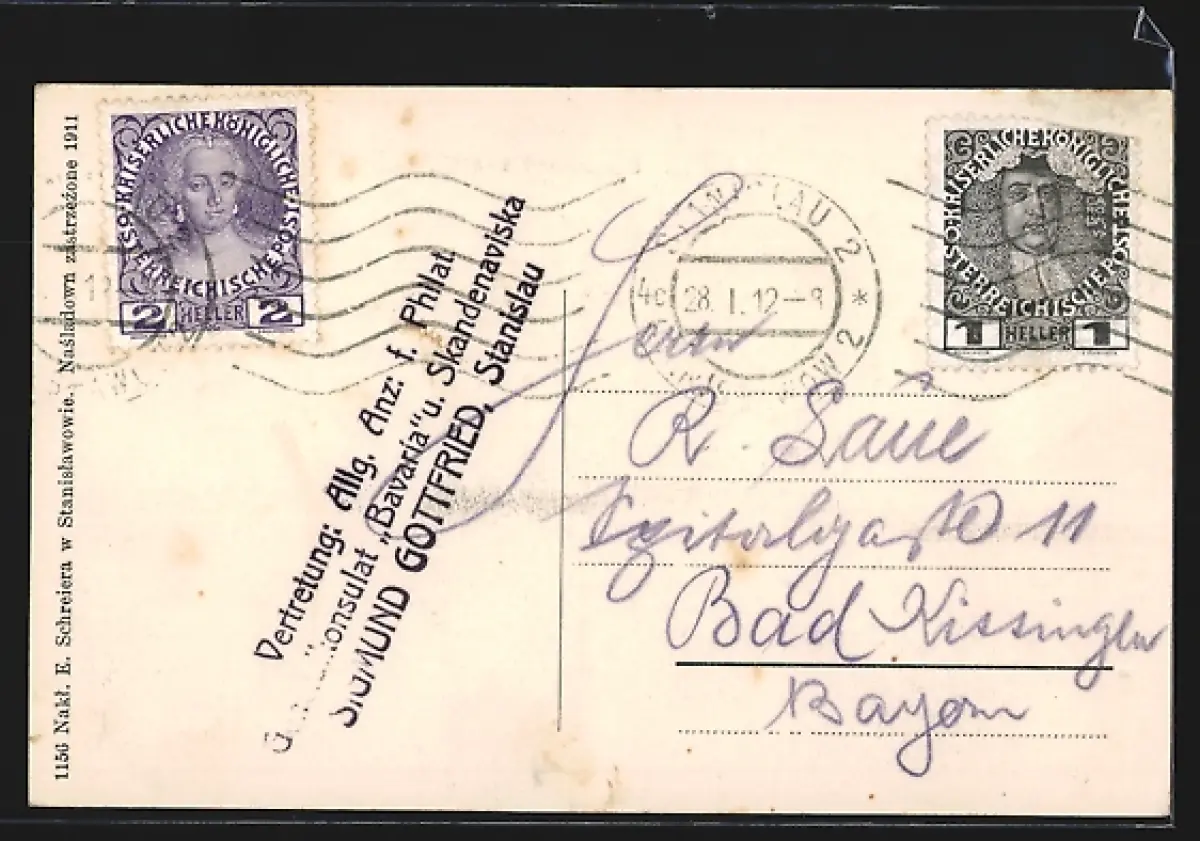 1156 Nakł. E. Schreiera w Stanisławowie. Naśladown zastrzeżone 1911
KAISERLICHE KÖNIGLICHE ÖSTERREICHISCHE POST
2 HELLER 2
KAISERLICHE KÖNIGLICHE ÖSTERREICHISCHE POST
1 HELLER 1
LAU 2
28. I. 12-9 *
ÓW 2
Vertretung: Allg. Anz. f. Philat.
Konsulat „Bavaria" u. Skandenaviska
SIGMUND GOTTFRIED, Stanislau
R. Saue
11
Bad Kissingen
Bayern